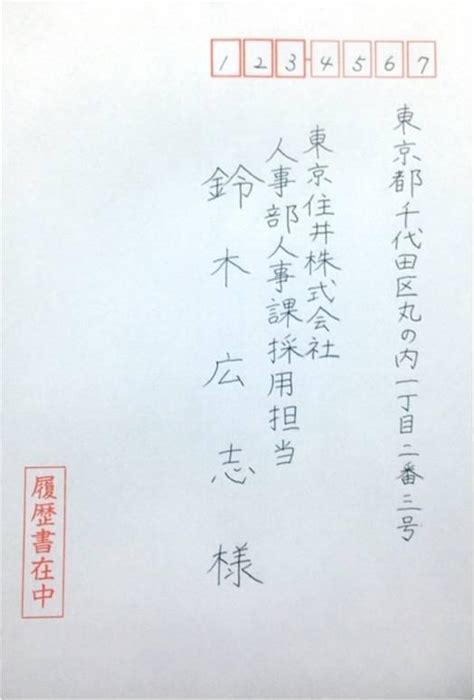 123-4567
東京都千代田区丸の内一丁目二番三号
東京住井株式会社
人事部人事課採用担当
鈴木広志様
履歴書在中